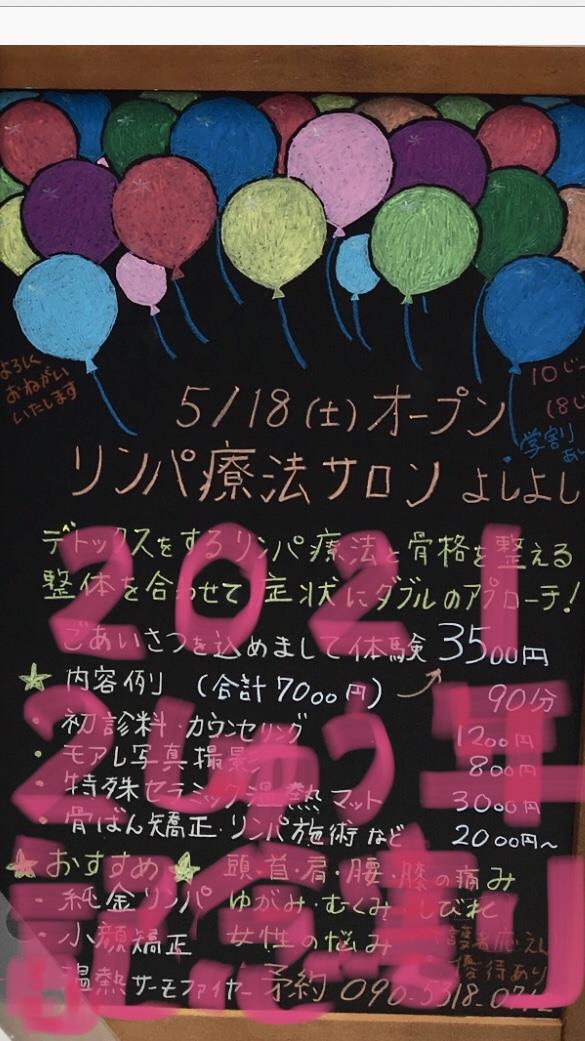 よろしく
おねがい
いたします
10じ
(8じ
学割
5/18(土)オープン
リンパ療法サロン よしよし
デトックスをするリンパ療法と骨格を整える
整体を合わせて 症状にダブルのアプローチ!
ごあいさつを込めまして体験 3500円
★ 内容例 (合計7000円) 90分
・初診料・カウンセリング 1200円
・モアレ写真撮影 800円
・特殊セラミック温熱マット 3000円
・骨ばん矯正・リンパ施術など 2000円~
★おすすめ★ 頭・首・肩・腰・膝の痛み
・純金リンパ ゆがみ・むくみ しびれ
・小顔矯正 女性の悩み
優待あり
温熱サーモファイヤー 予約 090-5318-07
2021